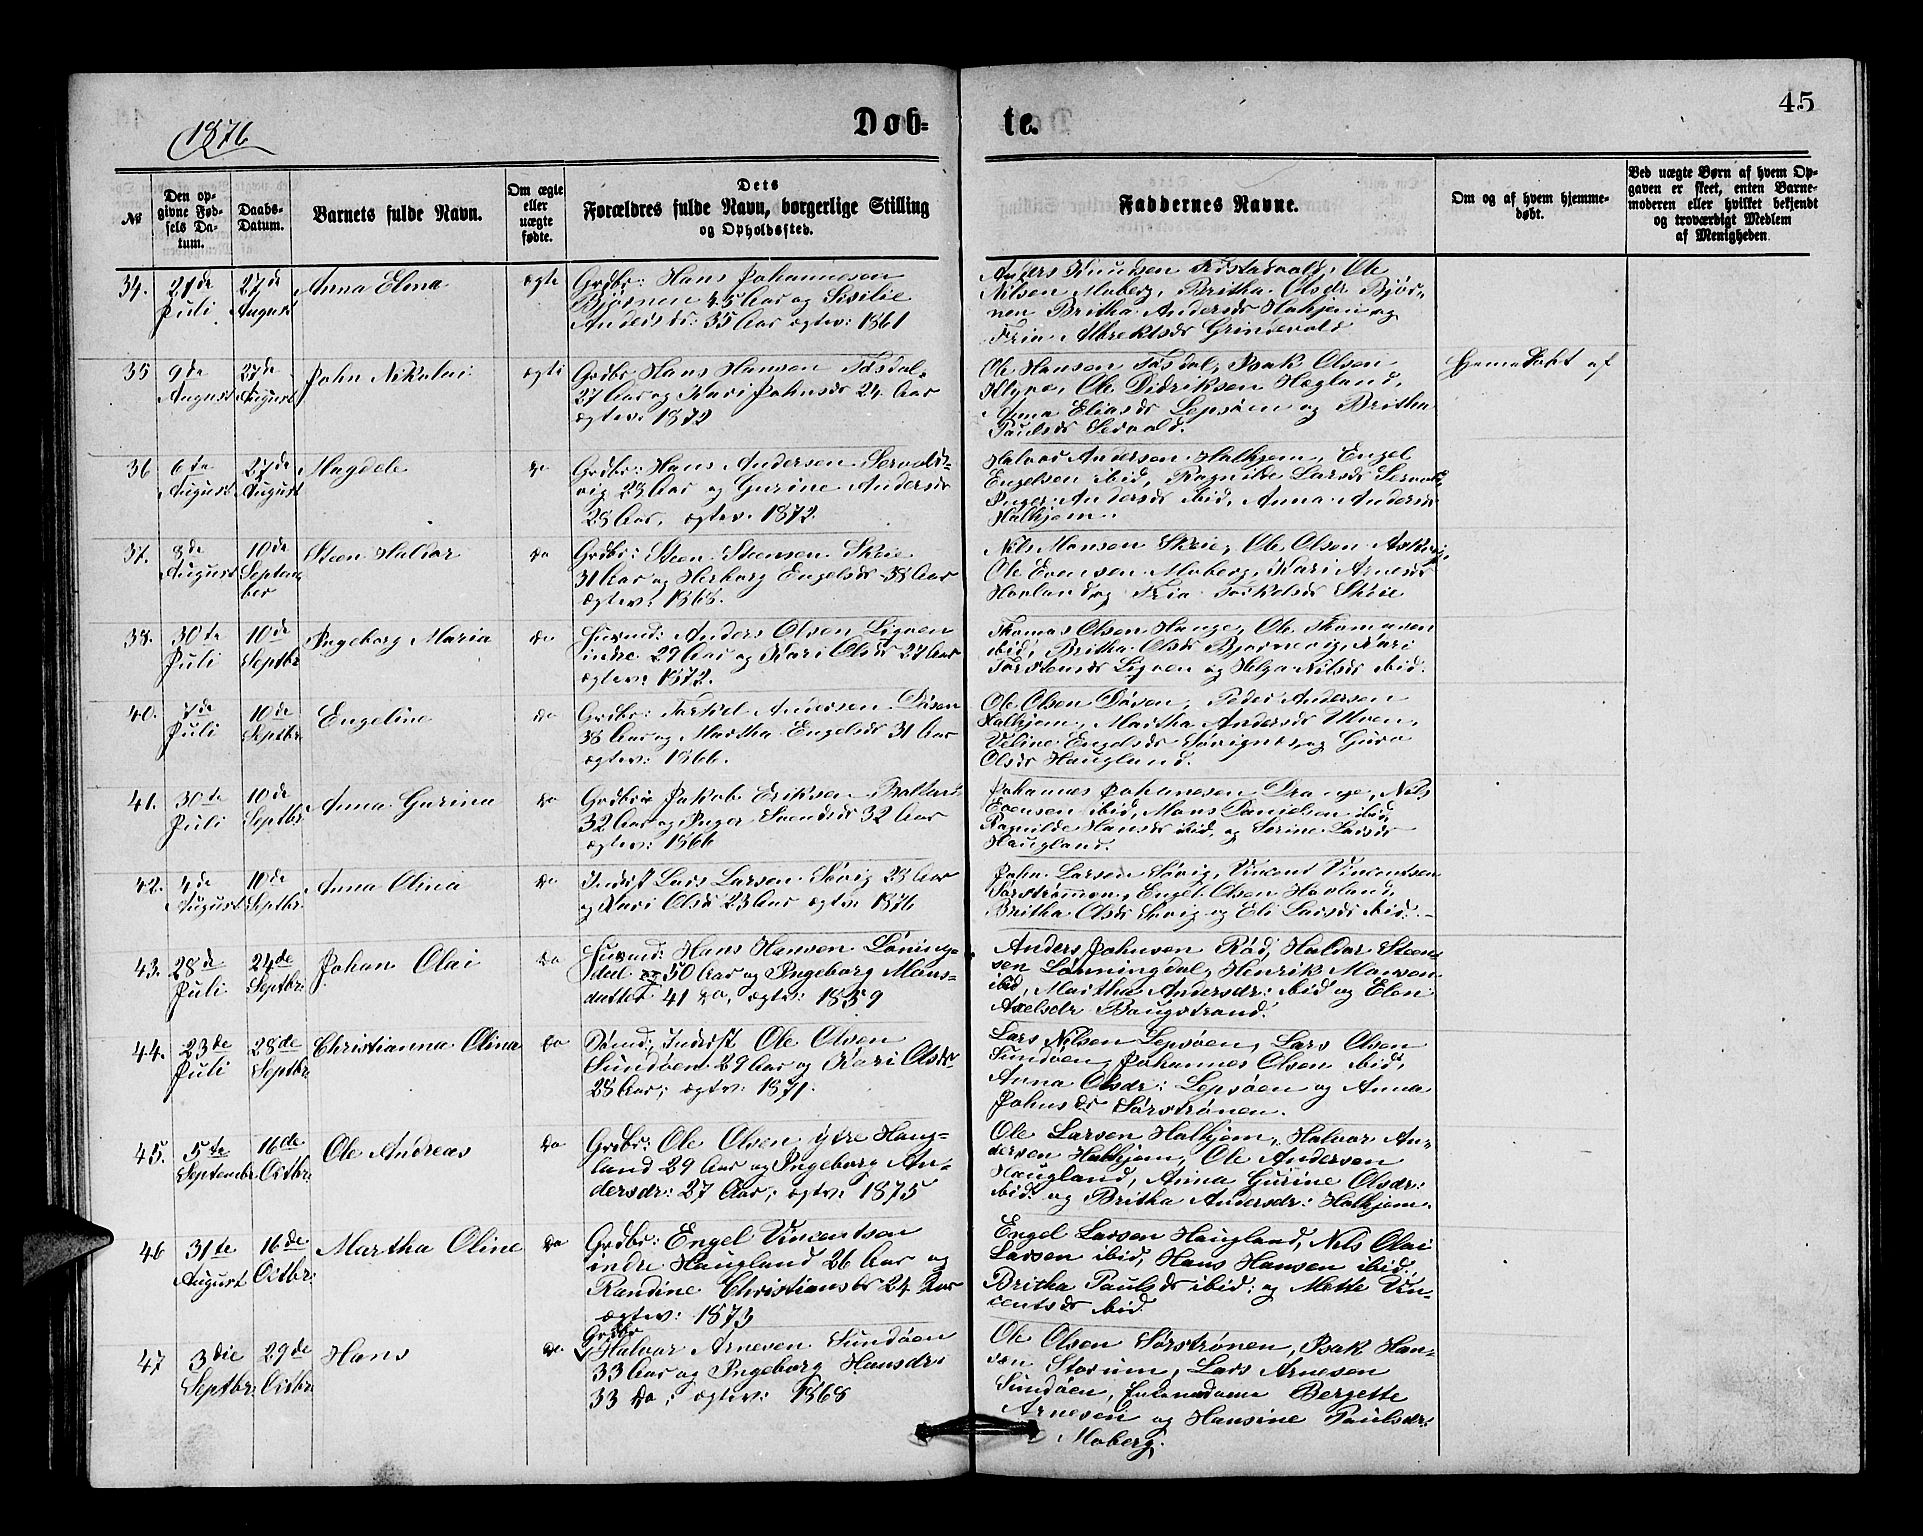 1876
Døb-
te.
45
№
Den op-
givne Fød-
sels Da-
tum.
Daabs-
Datum.
Barnets fulde Navn.
Om ægte
eller
uægte
fødte.
Dets
Forældres fulde Navn, borgerlige Stilling
og Opholdssted.
Faddernes Navne.
Om og af hvem hjemme-
døbt.
Ved uægte Børn af hvem Op-
gaven er skeet, enten Barne-
moderen eller hvilket bekjendt
og troværdigt Medlem
af Menigheden.
34.
21de
Juli
27de
August
Anna Elina
ægte
Grdbr: Hans Johannesen
Bjørnen 45 Aar og Sisilie
Andersdr: 35 Aar ægtev: 1861
Anders Knudsen Ole
Nilsen Moberg, Britha Olsdr Bjør-
nen Britha Andersdr Halhjem og
Albrektsdr Grindevold
35
9de
August
27de
August
John Nikolai
ægte
Grdbr Hans Hansen Tøsdal,
27 Aar og Kari Johnsdr 24 Aar
ægtev: 1872
Ole Hansen Tøsdal, Isak Olsen
Ole Didriksen Hegland,
Anna Eliasdr Lepsøen og Britha
Paulsdr
Hjemmedøbt af
36
6te
August
27de
August
Magdele
do
Grdbr: Hans Andersen
vig 23 Aar og Gurine Andersdr
28 Aar, ægtev. 1872.
Halvor Andersen Halhjem, Engel
Engelsen ibid, Ragnilde Larsdr
Inger Andersdr ibid, Anna Andersdr
Halhjem.
37.
8de
August
10de
Septem-
ber
Steen Haldor
do
Grdbr: Steen Steensen Skeie
31 Aar og Herborg Engelsdr 38 Aar
ægtev: 1868.
Nils Monsen Skeie, Ole Olsen Askvig,
Ole Evensen Moberg, Kari Arnesdr
Hovland og Torkelsdr Skeie
38.
30te
Juli
10de
Septbr
Ingeborg Maria
do
Husmd: Anders Olsen Ligven
indre 29 Aar og Kari Olsdr 27 Aar
ægtev: 1872.
Thomas Olsen Hauge, Ole Thomasen
ibid, Britha Olsdr Bjørnevig, Kari
Torstensdr Ligven og Helga Nilsdr ibid.
40.
7de
Juli
10de
Septbr
Engeline
do
Grdbr: Torkel Andersen Døsen
38 Aar og Martha Engelsdr 31 Aar
ægtev: 1866.
Ole Olsen Døsen, Peder Andersen
Halhjem, Martha Andersdr Ulven,
Veline Engelsdr og Guro
Olsdr Haugland.
41.
30te
Juli
10de
Septbr
Anna Gurina
do
Grdbr Jakob Eriksen
32 Aar og Inger Svendsdr 32 Aar
ægtev: 1866
Johannes Johanesen Drange, Nils
Evensen ibid, Mons Danielsen ibid,
Ragnilde Hansdr ibid, og Serine Larsdr
Haugland.
42.
4de
August
10de
Septbr
Anna Olina
do
Inderst Lars Larsen Søvig 23 Aar
og Kari Olsdr 23 Aar ægtev 1876
John Larsen Søvig, Vincent Vincentsen
Sørstrømmen, Engel Olsen Hovland,
Britha Olsdr Søvig og Eli Larsdr ibid.
43.
28de
Juli
24de
Septbr:
Johan Olai
do
Husmd: Hans Hansen Lønning-
dal og 50 Aar og Ingeborg Mons-
datter 41 do, ægtev: 1859
Anders Johnsen Rød, Haldor Steen-
sen Lønningdal, Henrik Monsen
ibid, Martha Andersdr: ibid og Elen
Axelsdr Baugstrand.
44.
23de
Juli
28de
Septbr
Christianna Olina
do
Inderst Ole Olsen
Sundøen 29 Aar og Kari Olsdr
28 Aar; ægtev: 1871.
Lars Nilsen Lepsøen, Lars Olsen
Sundøen, Johannes Olsen ibid,
Anna Olsdr: Lepsøen og Anna
Johnsdr Sørstrønen.
45.
5te
Septembr
16de
Octbr:
Ole Andreas
do
Grdbr: Ole Olsen ytre Haug-
land 29 Aar og Ingeborg An-
dersdr: 27 Aar; ægtev: 1875
Ole Larsen Halhjem, Halvor An-
dersen Halhjem, Ole Andersen
Haugland, Anna Gurine Olsdr:
ibid og Britha Andersdr: Halhjem.
46
31te
August
16de
Octbr:
Martha Oline
do
Grdbr: Engel Vincentsen
indre Haugland 26 Aar og
Randine Christiansdr 24 Aar
ægtev: 1873
Engel Larsen Haugland, Nils Olai
Larsen ibid, Hans Hansen ibid,
Britha Paulsdr ibid; og Mette Vin-
centsdr ibid
47
3die
Septbr:
29de
Octbr
Hans
do
Grdbr
Halvor Arnesen Sundøen
33 Aar og Ingeborg Hansdr:
33 do; ægtev: 1868
Ole Olsen Sørstrønen, Isak Han-
sen Storum, Lars Arnesen
Sundøen, Bergette
Arnesen og Hansine Paulsdr:
Moberg.